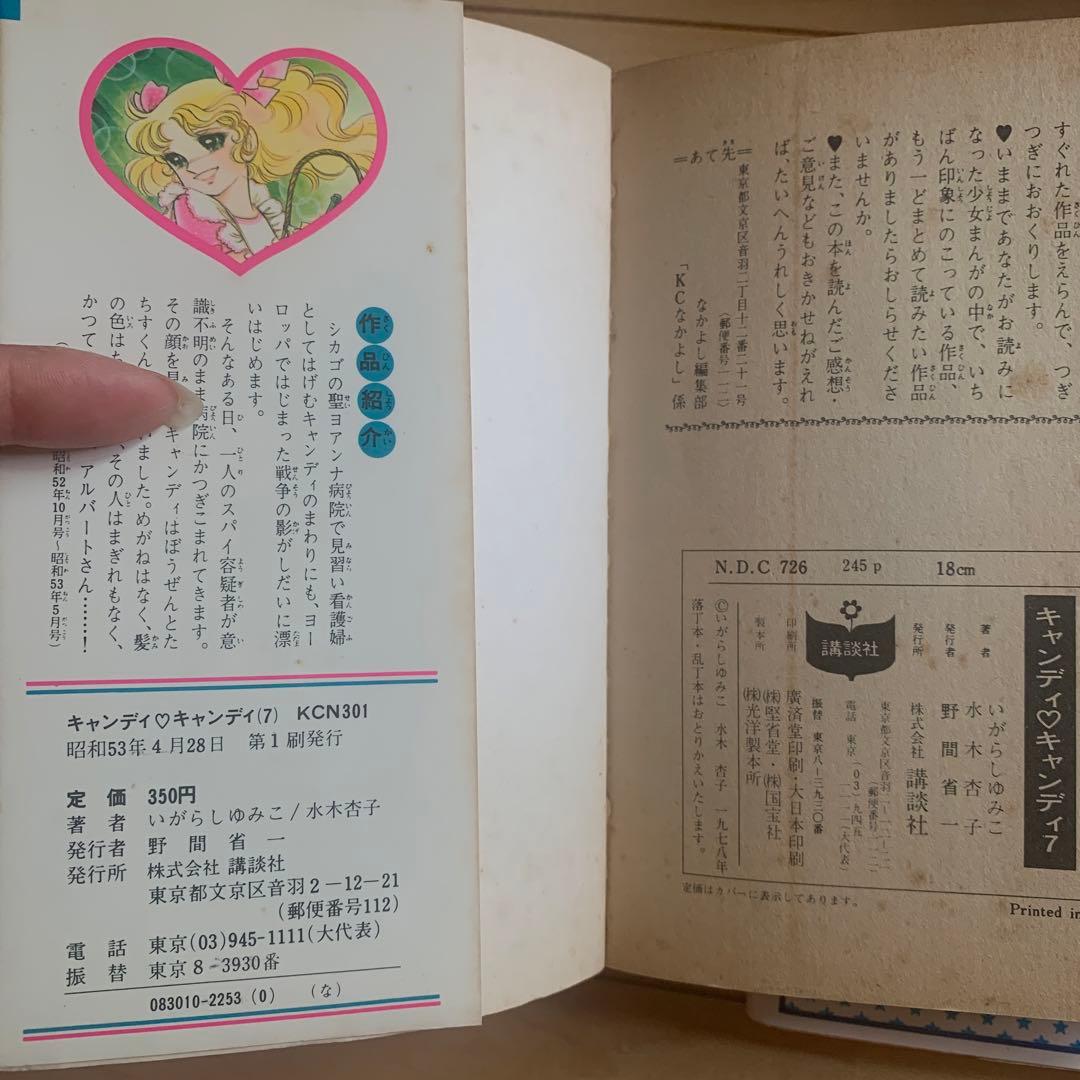 作品紹介
シカゴの聖ヨアンナ病院で見習い看護婦
としてはげむキャンディのまわりにも、ヨー
ロッパではじまった戦争の影がしだいに漂
いはじめます。
そんなある日、一人のスパイ容疑者が意
識不明のまま病院にかつぎこまれてきます。
その顔を見 キャンディはぼうぜんとた
ちすくん いました。めがねはなく、髪
の色は 、その人はまぎれもなく、
かつて アルバートさん……!
昭和52年10月号〜昭和53年5月号)
キャンディ♡キャンディ(7) KCN301
昭和53年4月28日 第1刷発行
定価 350円
著者 いがらしゆみこ/水木杏子
発行者 野間省一
発行所 株式会社 講談社
東京都文京区音羽2-12-21
(郵便番号112)
電話 東京(03)945-1111(大代表)
振替 東京8-3930番
083010-2253 (0) (な)
すぐれた作品をえらんで、つぎ
つぎにおおくりします。
♥いままであなたがお読みに
なった少女まんがの中で、いち
ばん印象にのこっている作品、
もう一どまとめて読みたい作品
がありましたらおしらせくださ
いませんか。
♥また、この本を読んだご感想・
ご意見などもおきかせねがえれ
ば、たいへんうれしく思います。
=あて先=
東京都文京区音羽二丁目十二番二十一号
(郵便番号一一二)
なかよし編集部
「KCなかよし」係
N.D.C 726 245p 18cm
キャンディ♡キャンディ7
著者 いがらしゆみこ
水木杏子
発行者 野間省一
発行所 株式会社 講談社
東京都文京区音羽二-一二-二一
(郵便番号一一二)
電話 東京(03)九四五-一一一一(大代表)
振替 東京八-三九三〇番
講談社
印刷所 廣済堂印刷・大日本印刷
㈱堅省堂・㈱国宝社
製本所 ㈱光洋製本所
©いがらしゆみこ 水木杏子 一九七八年
落丁本・乱丁本はおとりかえいたします。
定価はカバーに表示してあります。
Printed in